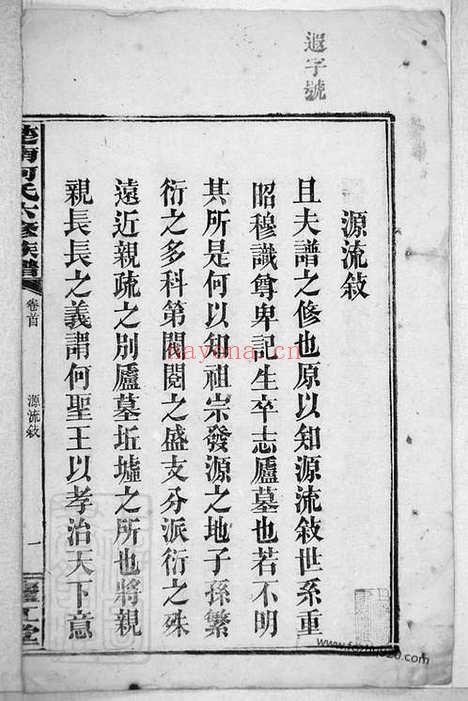 遐字號
源流敘
且夫譜之修也原以知源流敘世系重
昭穆識尊卑記生卒志廬墓也若不明
其所是何以知祖宗發源之地子孫繁
衍之多科第閥閱之盛支分派衍之殊
遠近親疏之別廬墓坵墟之所也將親
親長長之義謂何聖王以孝治天下意
楚南何氏六修族譜
卷首
源流敘
一